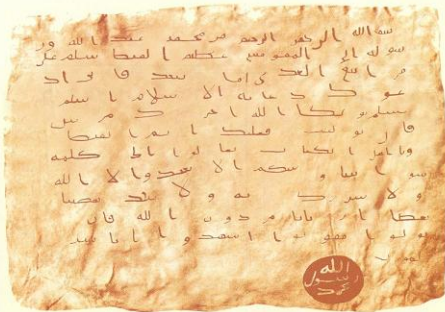 بسم الله الرحمن الرحيم من محمد عبد الله ور
سوله إلى المقوقس عظيم القبط سلام على
من اتبع الهدى أما بعد فإني أد
عوك بدعاية الإسلام أسلم
تسلم يؤتك الله أجرك مرتين
فإن توليت فعليك إثم القبط
ويا أهل الكتاب تعالوا إلى كلمة
سواء بيننا وبينكم ألا نعبد إلا الله
ولا نشرك به ولا يتخذ بعضنا
بعضا أربابا من دون الله فإن
تولوا فقولوا اشهدوا بأنا
الله
رسول
محمد